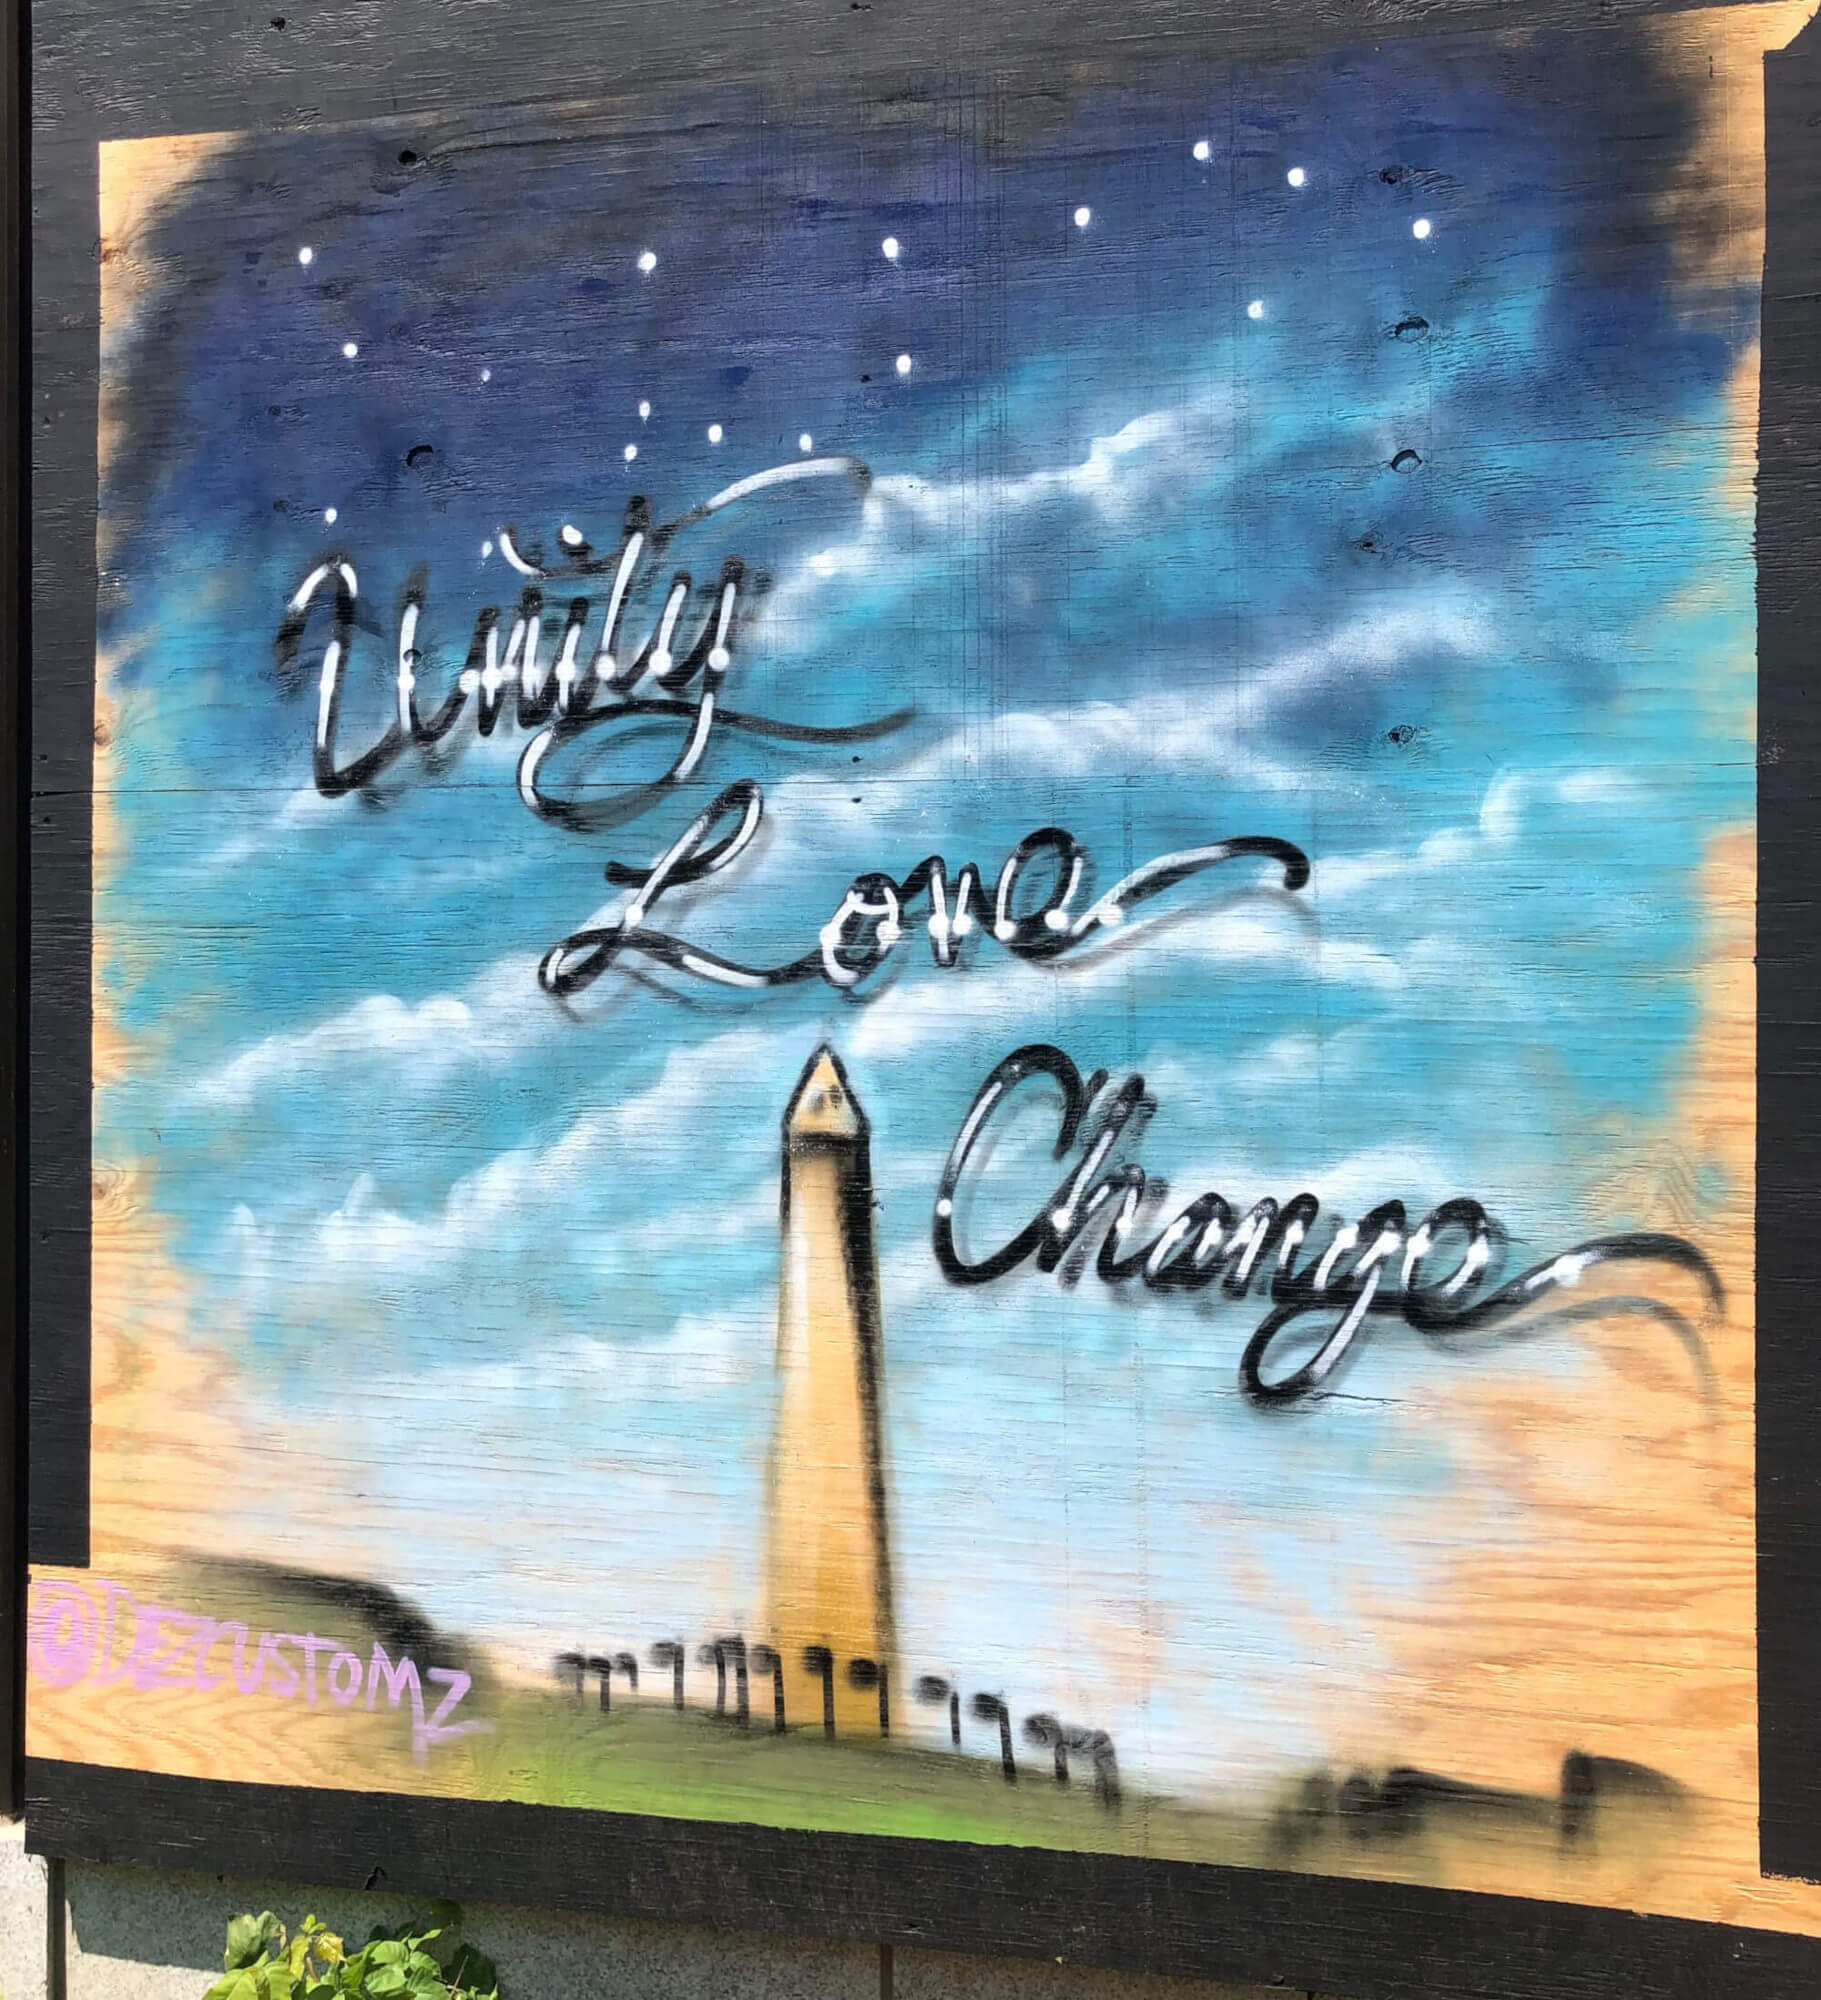 Unity
Love
Change
@DEZCUSTOMZ